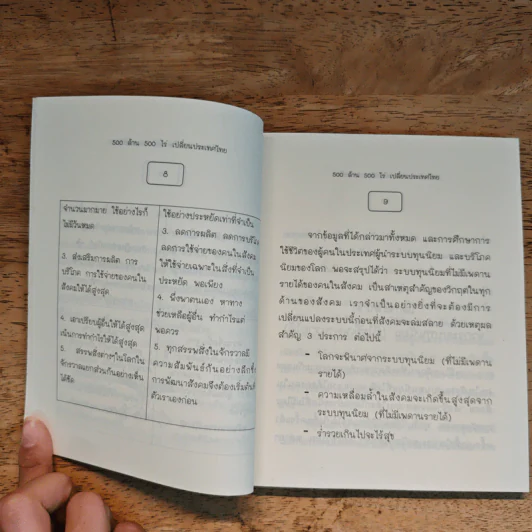 500 ล้าน 500 ไร่ เปลี่ยนประเทศไทย
8
จำนวนมากมาย ใช้อย่างไรก็
ไม่มีวันหมด
3. ส่งเสริมการผลิต การ
บริโภค การใช้จ่ายของคนใน
สังคมให้ได้สูงสุด
4. เอาเปรียบผู้อื่นให้ได้สูงสุด
เน้นการทำกำไรให้ได้สูงสุด
5. สรรพสิ่งต่างๆในโลกใน
จักรวาลแยกส่วนกันอย่างเห็น
ได้ชัด
ใช้อย่างประหยัดเท่าที่จำเป็น
3. ลดการผลิต ลดการบริโภค
ลดการใช้จ่ายของคนในสังคม
ให้ใช้จ่ายเฉพาะในสิ่งที่จำเป็น
ประหยัด พอเพียง
4. พึ่งพาตนเอง หาทาง
ช่วยเหลือผู้อื่น ทำกำไรแต่
พอควร
5. ทุกสรรพสิ่งในจักรวาลมี
ความสัมพันธ์กันอย่างลึกซึ้ง
การพัฒนาสังคมจึงต้องเริ่มต้นที่
ตัวเราเองก่อน
500 ล้าน 500 ไร่ เปลี่ยนประเทศไทย
9
จากข้อมูลที่ได้กล่าวมาทั้งหมด และการศึกษาการ
ใช้ชีวิตของผู้คนในประเทศผู้นำระบบทุนนิยม และบริโภค
นิยมของโลก พอจะสรุปได้ว่า ระบบทุนนิยมที่ไม่มีเพดาน
รายได้ของคนในสังคม เป็นสาเหตุสำคัญของวิกฤตในทุก
ด้านของสังคม เราจำเป็นอย่างยิ่งที่จะต้องมีการ
เปลี่ยนแปลงระบบนี้ก่อนที่สังคมจะล่มสลาย ด้วยเหตุผล
สำคัญ 3 ประการ ต่อไปนี้
- โลกจะพินาศจากระบบทุนนิยม (ที่ไม่มีเพดาน
รายได้)
- ความเหลื่อมล้ำในสังคมจะเกิดขึ้นสูงสุดจาก
ระบบทุนนิยม (ที่ไม่มีเพดานรายได้)
- ร่ำรวยเกินไปจะไร้สุข